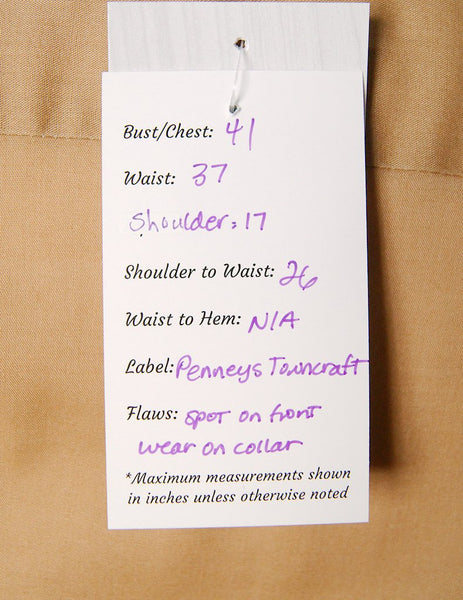 Bust/Chest: 41
Waist: 37
Shoulder: 17
Shoulder to Waist: 26
Waist to Hem: N/A
Label: Penneys Towncraft
Flaws: spot on front
wear on collar
*Maximum measurements shown
in inches unless otherwise noted